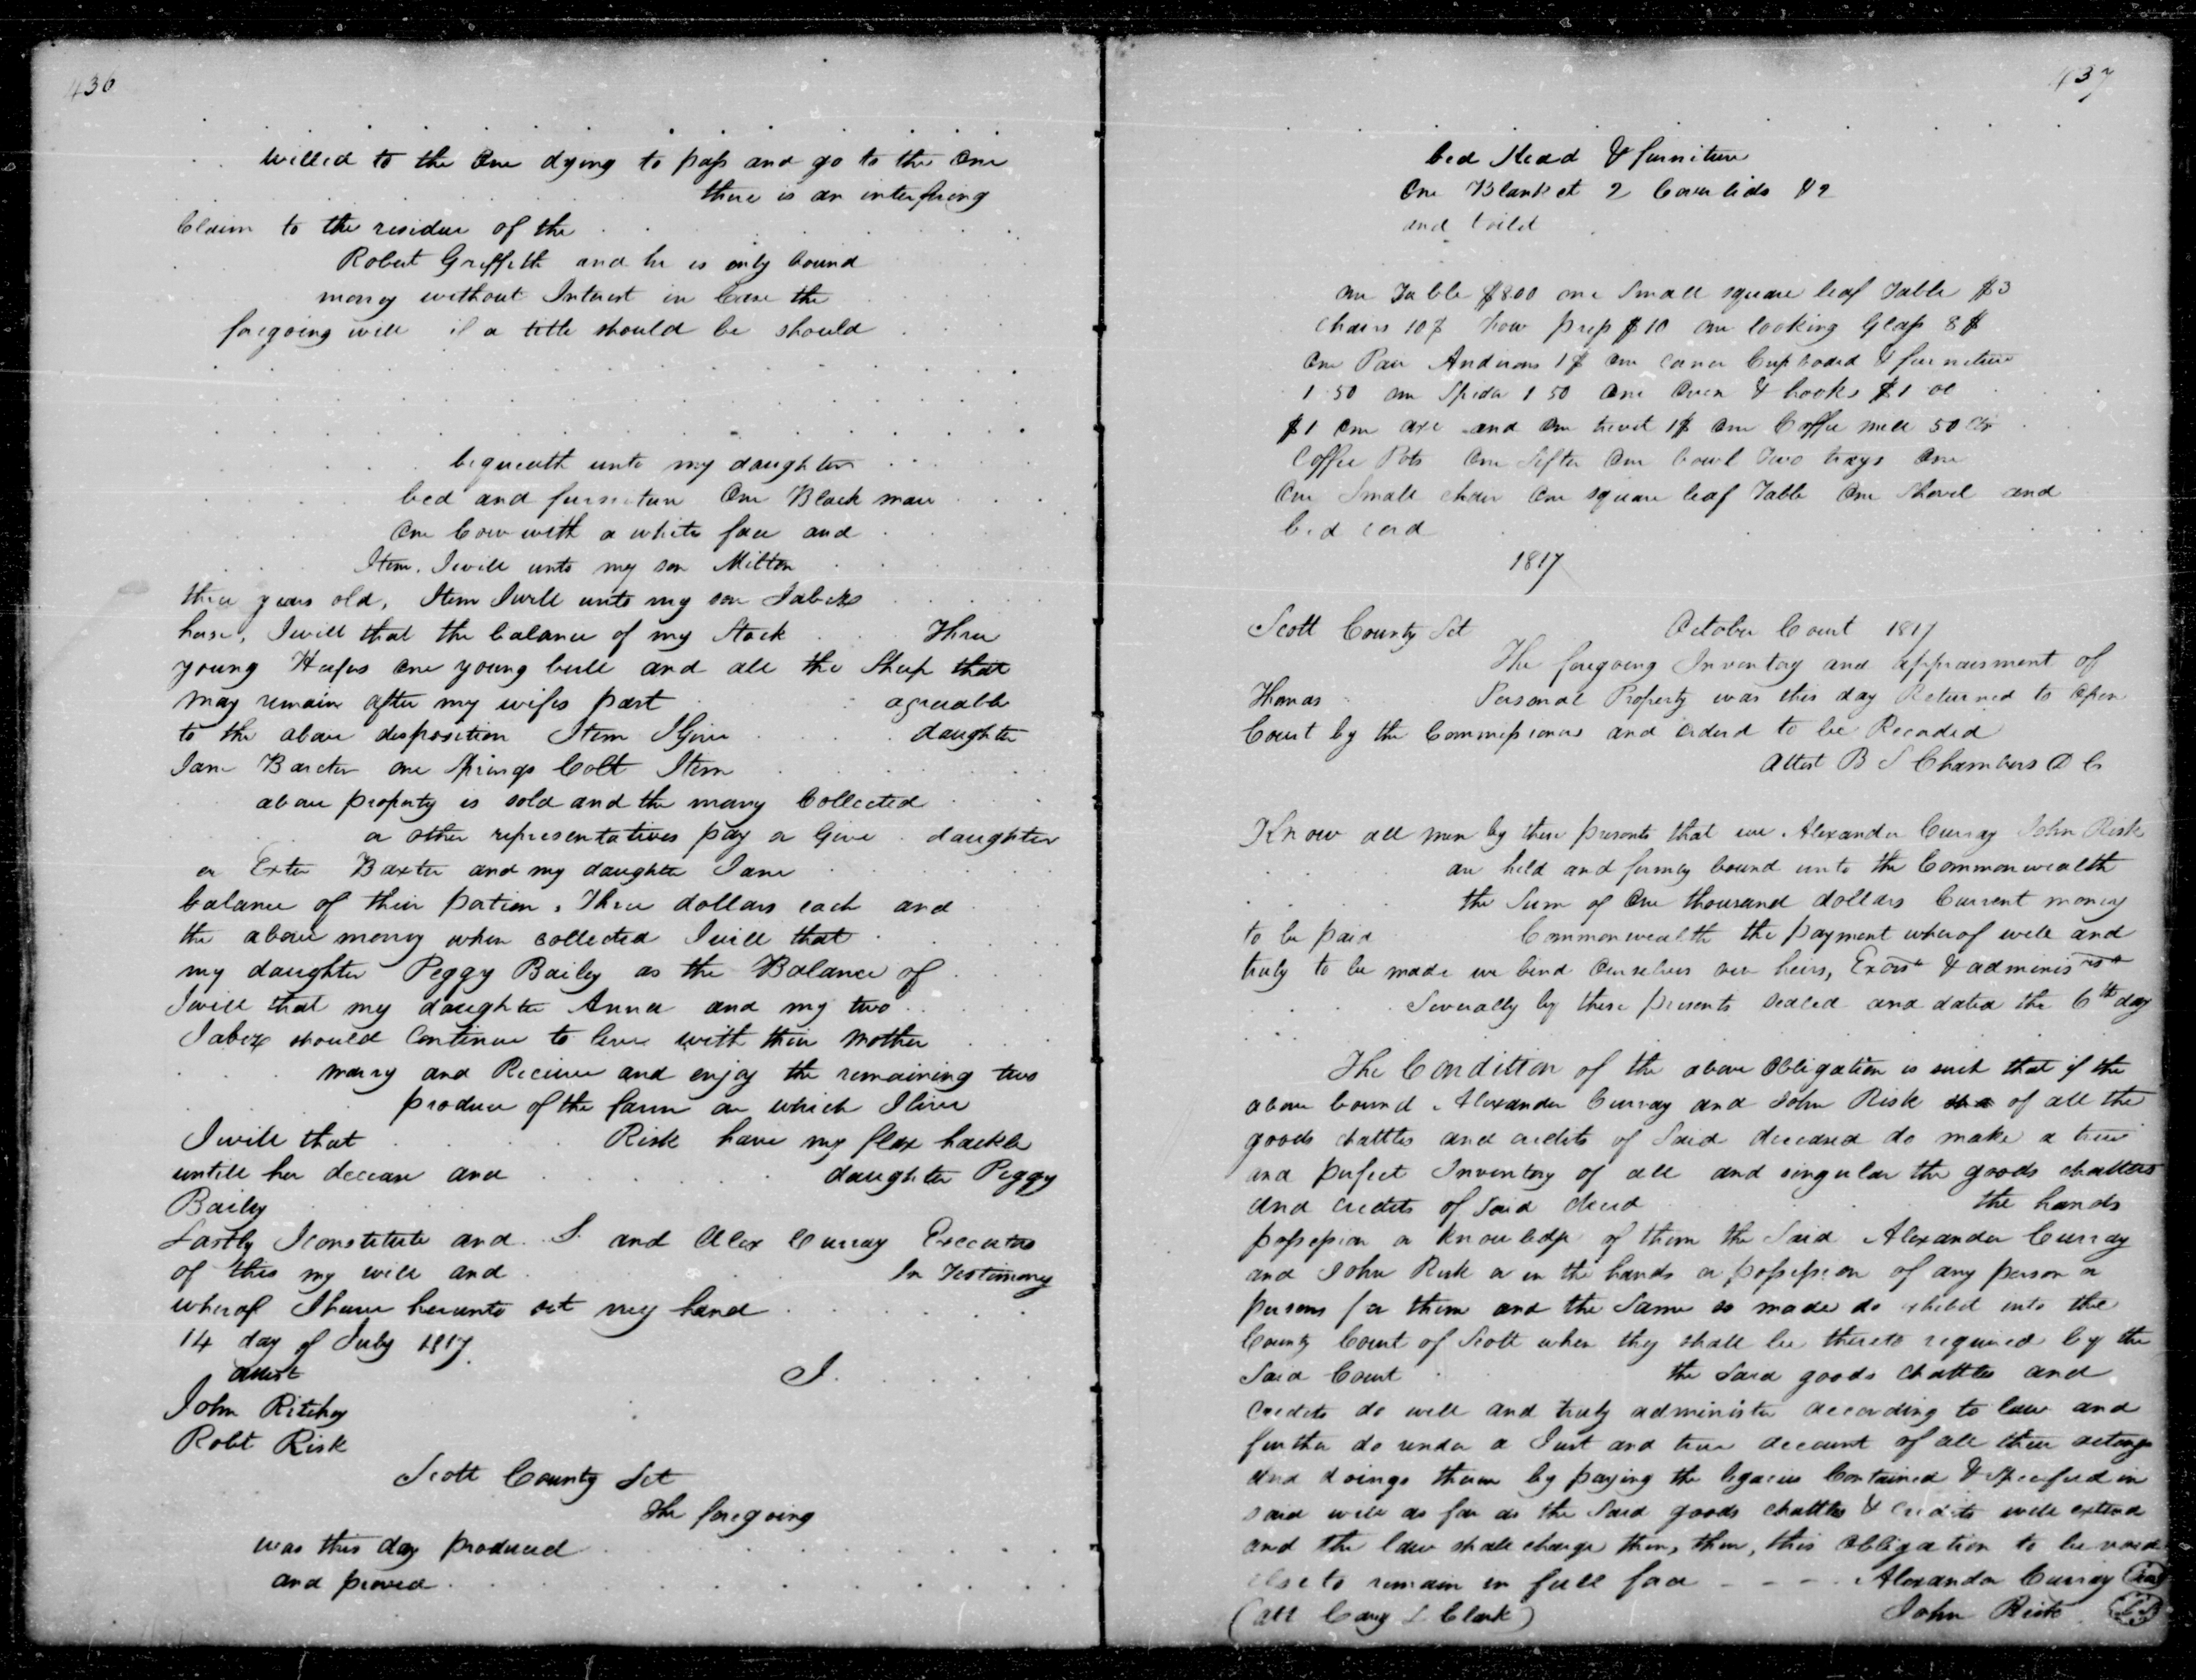 436
willed to the One dying to pass and go to the One
there is an interfering
Claim to the residue of the
Robert Griffith and he is only bound
money without Interest in Case the
foregoing will if a title should be should
bequeath unto my daughter
bed and furniture One Black mare
One Cow with a white face and
Item. I will unto my son Milton
three years old, Item I will unto my son Jabez
horse, I will that the balance of my Stock Three
young Heifers one young bull and all the Sheep that
may remain after my wifes part agreeable
to the above disposition Item I Give daughter
Jane Baxter one Springs Colt Item
above property is sold and the money Collected
or other representatives pay or Give daughter
or Exter Baxter and my daughter Jane
balance of their portion, Three dollars each and
the above money when collected I will that
my daughter Peggy Bailey as the Balance of
I will that my daughter Anna and my two
Jabez should Continue to live with their Mother
marry and Receive and enjoy the remaining two
produce of the farm on which I live
I will that Risk have my flax hackle
untill her decease and daughter Peggy
Bailey
Lastly I constitute and S. and Alex Curray Executors
of this my will and In Testimony
wherof I have herunto set my hand
14 day of July 1817
attest I
John Ritchey
Robt Risk
Scott County Sct
The foregoing
was this day produced
and proved
437
bed stead & furniture
One Blanket 2 Coverlids $2
and
one Table $8.00 one Small square leaf Table $3
Chairs 10$ press $10 one looking Glass 8$
One Pair Andirons 1$ One corner Cupboard & furniture
1 50 one Spider 1 50 One Oven & hooks $1 00
$1 One axe and One trevit 1$ One Coffee mill 50 Cts
Coffee Pots One Sifter One bowl Two trays One
One Small chair One square leaf Table One Shovel and
bed cord
1817
Scott County Sct October Court 1817
The foregoing Inventory and appraisment of
Thomas Personal Property was this day Returned to Open
Court by the Commissioners and orderd to be Recorded
Attest B S Chambers D C
Know all men by these presents that we Alexander Curray John Risk
are held and firmly bound unto the Commonwealth
the Sum of One thousand dollars Current money
to be paid Commonwealth the payment wherof well and
truly to be made we bind Ourselves our heirs, Exors & adminis rs
Severally by these presents sealed and dated the 6th day
The Condition of the above Obligation is such that if the
above bound Alexander Curray and John Risk of all the
goods chattles and credits of Said deceased do make a true
and perfect Inventory of all and singular the goods chattles
and credits of Said decd the hands
possession or knowledge of them the Said Alexander Curray
and John Risk or in the hands or possession of any person or
persons for them and the Same so made do exhibit into the
County Court of Scott when they shall be thereto required by the
Said Court the Said goods chattles and
Credits do well and truly administer according to law and
further do render a Just and true account of all their actings
and doings therein by paying the legacies Contained & Specified in
said will as far as the Said goods chattles & credits will extend
and the law shall charge them, then, this Obligation to be void
else to remain in full force - - - Alexander Curray (seal)
(att Cary L Clark) John Risk